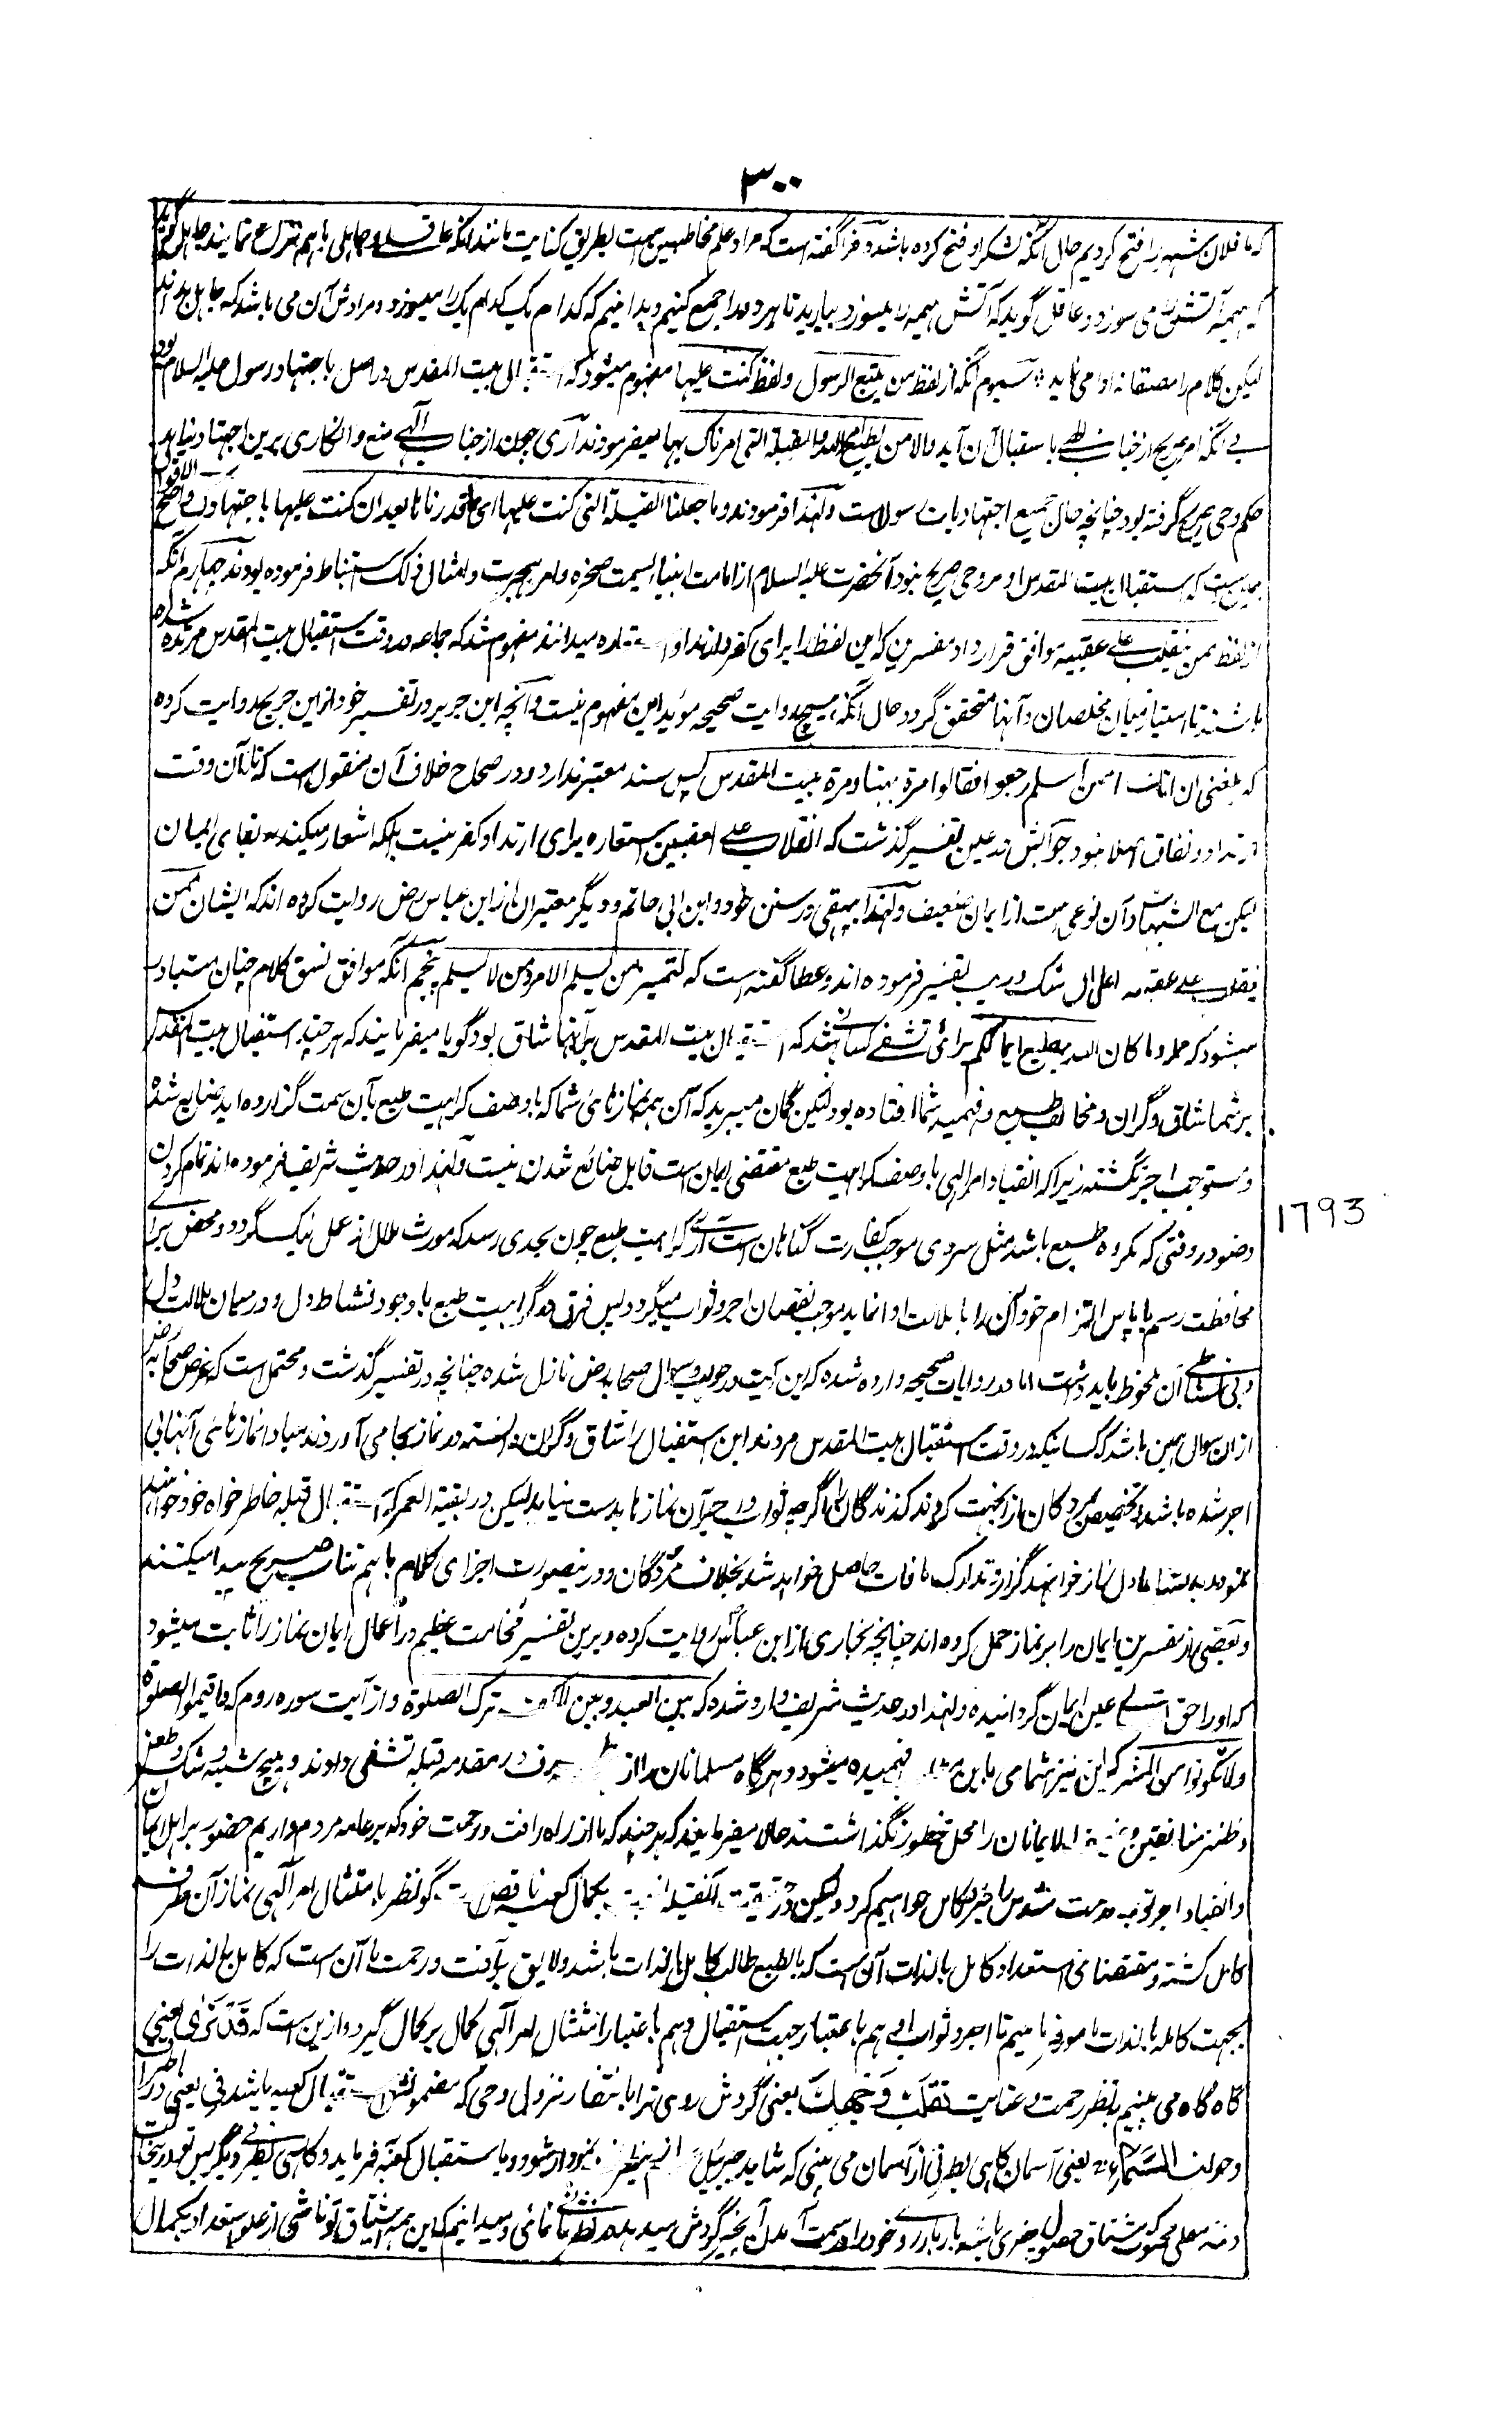 ۳۰۰
که ما فلان شهر را فتح کردیم حال آنکه لشکر او فتح کرده باشد و فرا گفته است که مراد علم مخاطبین است بطریق کنایت مانند آنکه عاقلی و جاهلی باهم نزاع نمایند جاهل گوید
که هیمه آتش را می سوزد و عاقل گوید که آتش هیمه را میسوزد بیارید تا هر دو را جمع کنیم و بدانیم که کدام یک کدام یک را میسوزد و مرادش آن می باشد که جاهل بداند
لیکن کلام را مصنفانه ادا می نماید سیوم آنکه از لفظ من یتبع الرسول و لفظ کنت علیها مفهوم میشود که استقبال بیت المقدس در اصل باجتهاد رسول علیه السلام بود
بی آنکه امر صریح از جناب الهی باستقبال آن آید والا من یطیع الله والقبلة التی امرناک بها میفرمودند آری چون از جناب آلهی منع و انکاری برین اجتهاد نیامد
حکم وحی صریح گرفته بود چنانچه حال جمیع اجتهادیات رسول است ولهذا فرمودند وما جعلنا القبلة التی کنت علیها ای ما قدرنا تابعد ان کنت علیها باجتهادک و اصح الاقوال
همین است که استقبال بیت المقدس از روی وحی صریح نبود آنحضرت علیه السلام از امامت انبیا بسمت صخره و امر هجرت و امثال ذلک استنباط فرموده بودند چهارم آنکه
از لفظ ممن ینقلب علی عقبیه موافق قرارداد مفسرین که این لفظ را برای کفر و ارتداد استعاره میدانند مفهوم شد که جماعه در وقت استقبال بیت المقدس مرتد شده
باشند تا امتیاز میان مخلصان و آنها متحقق گردد حال آنکه هیچ روایت صحیحه مؤید این مفهوم نیست و آنچه ابن جریر در تفسیر خود از ابن جریج روایت کرده
که بلغنی ان اناسا ممن اسلم رجعوا فقالوا مرة ههنا ومرة ببیت المقدس پس سند معتبر ندارد و در صحاح خلاف آن منقول است که تا آن وقت
ارتداد و نفاق اصلا نبود جوابش در عین تفسیر گذشت که انقلاب علی العقبین استعاره برای ارتداد و کفر نیست بلکه اشعار میکند به بقای ایمان
لیکن مع الشبهات و آن نوعی است از ایمان ضعیف ولهذا بیهقی در سنن خود و ابن ابی حاتم و دیگر معتبران از ابن عباس رض روایت کرده اند که ایشان ممن
ینقلب علی عقبیه اهل شک و ریب تفسیر فرموده اند و عطا گفته است که لتمییز من یسلم الامر و من لا یسلم پنجم آنکه موافق نسق کلام چنان متبادر
میشود که جمله وما کان الله لیضیع ایمانکم برای تشفی کسانی باشد که استقبال بیت المقدس برآنها شاق بود گویا میفرمایند که هر چند استقبال بیت المقدس
بر شما شاق و گران و مخالف طبع و فهمید شما افتاده بود لیکن گمان مبرید که این همه نمازهای شما که با وصف کراهیت طبع بآن سمت گزارده اید ضایع شده
و مستوجب اجر نگشته زیرا که انقیاد امر الهی با وصف کراهیت طبع مقتضی ایمان است قابل ضائع شدن نیست ولهذا در حدیث شریف فرموده اند تمام کردن
وضو در وقتی که مکروه طبع باشد مثل سردی موجب کفارت گناهان است آری کراهیت طبع چون بحدی رسد که مورث ملال از عمل نیک گردد و محض برای
محافظت رسم یا پاس التزام خود آن را با ملالت ادا نماید موجب نقصان اجر و ثواب میگردد پس فرق در کراهیت طبع با وجود نشاط دل و درمیان ملالت دل
و بی نشاطی آن ملحوظ باید داشت اما در روایات صحیحه وارد شده که این آیت در جواب سوال صحابه رض نازل شده چنانچه در تفسیر گذشت و محتمل است که غرض صحابه رض
ازان سوال همین باشد که کسانیکه در وقت استقبال بیت المقدس مردند این استقبال را شاق و گران دانسته در نماز بجا می آوردند مبادا نمازهای آنها بی
اجر شده باشد و تخصیص مردگان ازانجهت کردند که زندگان را اگرچه ثواب و اجر آن نمازها بدست نیاید لیکن در بقیة العمر که استقبال قبله خاطر خواه خود خواهند
نمود و به نشاط دل نماز خواهند گزارد تدارک ما فات حاصل خواهد شد بخلاف مردگان و درینصورت اجزای کلام باهم تناسب صریح پیدا میکنند
و بعضی از مفسرین ایمان را بر نماز حمل کرده اند چنانچه بخاری از ابن عباس روایت کرده و برین تفسیر فخامت عظیم در اعمال ایمان نماز را ثابت میشود
که او را حق تعالی عین ایمان گردانیده ولهذا در حدیث شریف وارد شده که بین العبد وبین الکفر ترک الصلوة و از آیت سوره روم که واقیموا الصلوة
ولا تکونوا من المشرکین نیز شمامی باین فهمیده میشود و هرگاه مسلمانان را از در مقدمه قبله تشفی دادند و هیچ شبه و شک و طعن
و طنز منافقین و ضعیف الایمانان را محل خطور نگذاشتند حالا میفرمایند که هرچند که ما از راه رافت و رحمت خود که بر عامه مردم داریم خصوصا بر اهل ایمان
و انقیاد اجر توجه لیکن در حقیقت آنقبله بکمال کعبه ناقص گو نظر بامتثال امر آلهی نماز آن طرف
کامل گشته و مقتضای استعداد کامل بالذات آن است که بالطبع طالب کامل بالذات باشد و لایق برآفت و رحمت ما آن است که کامل بالذات را
بجهت کامله بالذات مامور فرمائیم تا اجر و ثواب او هم باعتبار جهت استقبال و هم باعتبار امتثال امر آلهی کمال بر کمال گیرد و ازین است که قَدْ نَرٰی یعنی
گاه گاه می بینیم بنظر رحمت و عنایت تَقَلُّبَ وَجْهِكَ یعنی گردش روی ترا بانتظار نزول وحی که مضمونش استقبال کعبه باشد فِی یعنی در اطراف
و جوانب السَّمَاءِ یعنی آسمان گاهی بطرفی از آسمان می بینی که شاید جبرئیل ازین طرف نمودار شود و باستقبال کعبه فرماید و گاهی بطرفی دیگر پس تو در رنگ
که مشتاق حصول چیزی باشد بار بار روی خود را در سمت آمدن آنچیز گردش میدهد و میدانیم که این همه اشتیاق تو ناشی از علو استعداد بکمال
1793